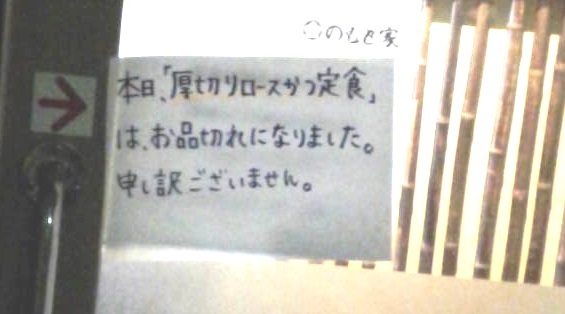 本日、「厚切りロースかつ定食」
は、お品切れになりました。
申し訳ございません。